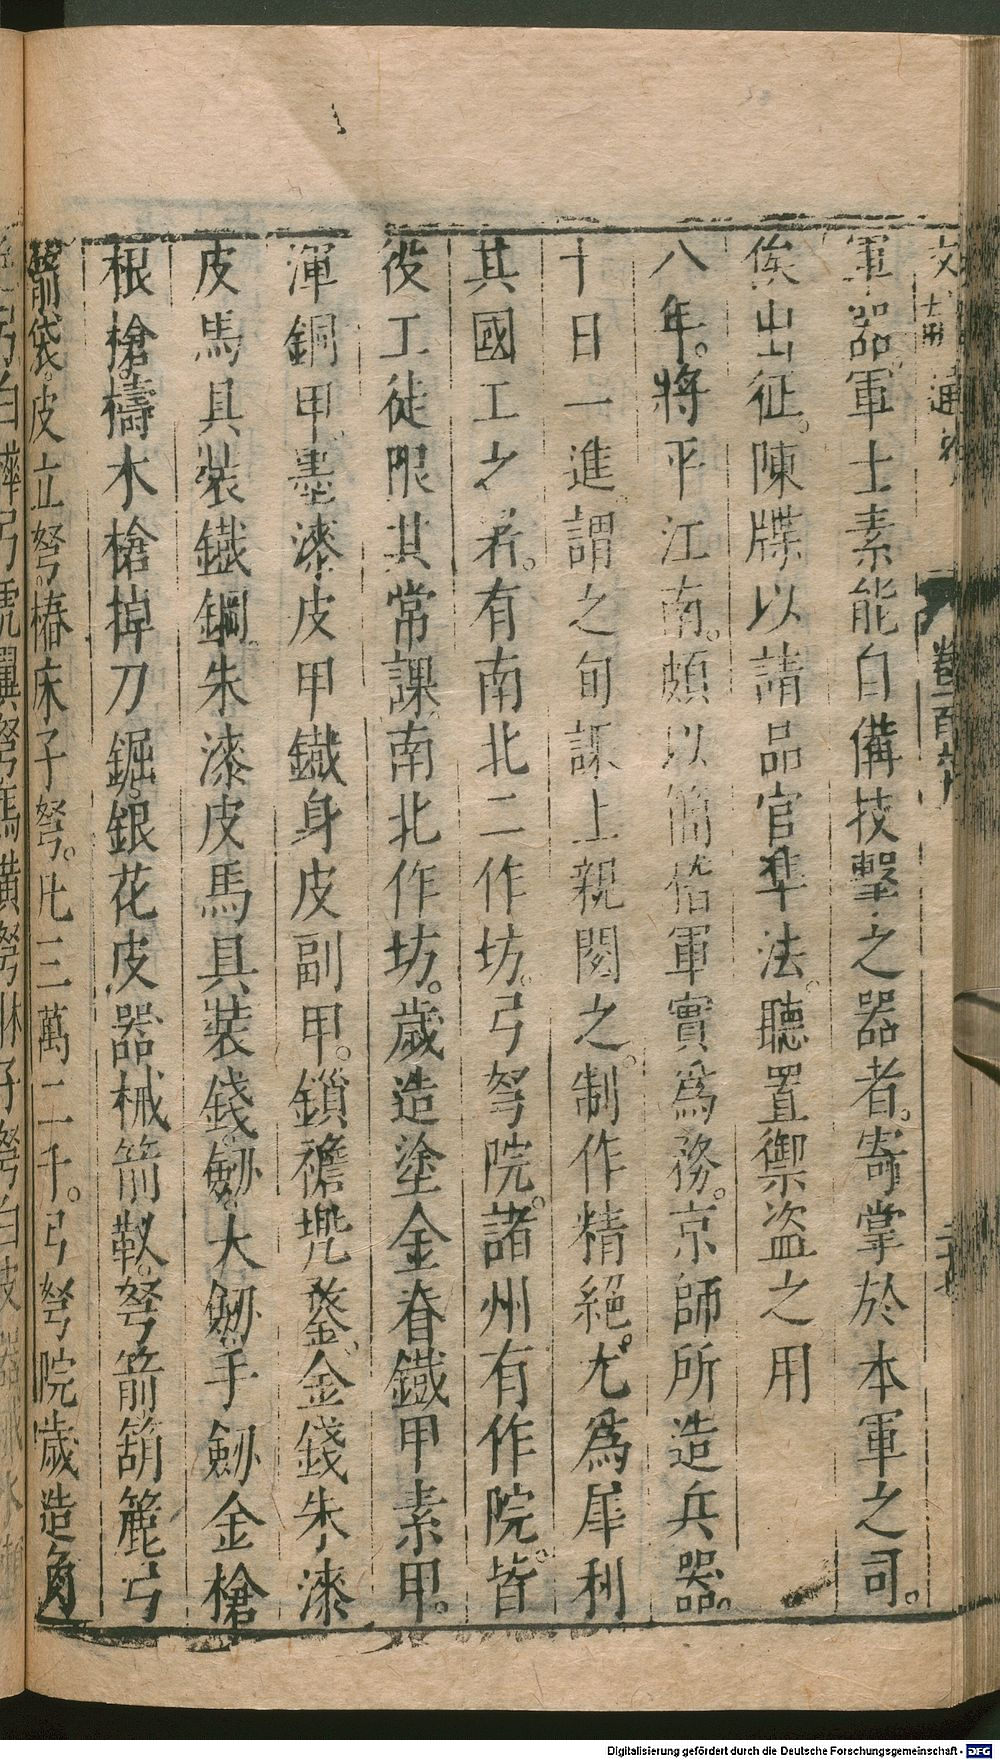 軍器軍士素能自備技擊之器者。寄掌於本軍之司。
俟出征。陳牒以請品官準法。聽置禦盜之用
八年。將平江南。頗以簡偹軍實爲務。京師所造兵器。
十日一進。謂之旬課上親閱之。制作精絕。尤爲犀利
其國工之署。有南北二作坊。弓弩院。諸州有作院。皆
役工徒限其常課。南北作坊。歲造塗金脊鐵甲素甲。
渾銅甲。墨漆皮甲鐵身皮副甲。鎖襜兠鍪。金錢朱漆
皮馬具裝鐵鋼。朱漆皮馬具裝錢。劒。大劒手劒金槍
根槍。檮木槍掉刀鋸。銀花皮器械箭靫。弩箭箶簏弓
箭袋。皮立弩。樁床子弩。凡三萬二千。弓弩院歲造角
卷一百六十
Digitalisierung gefördert durch die Deutsche Forschungsgemeinschaft - DFG